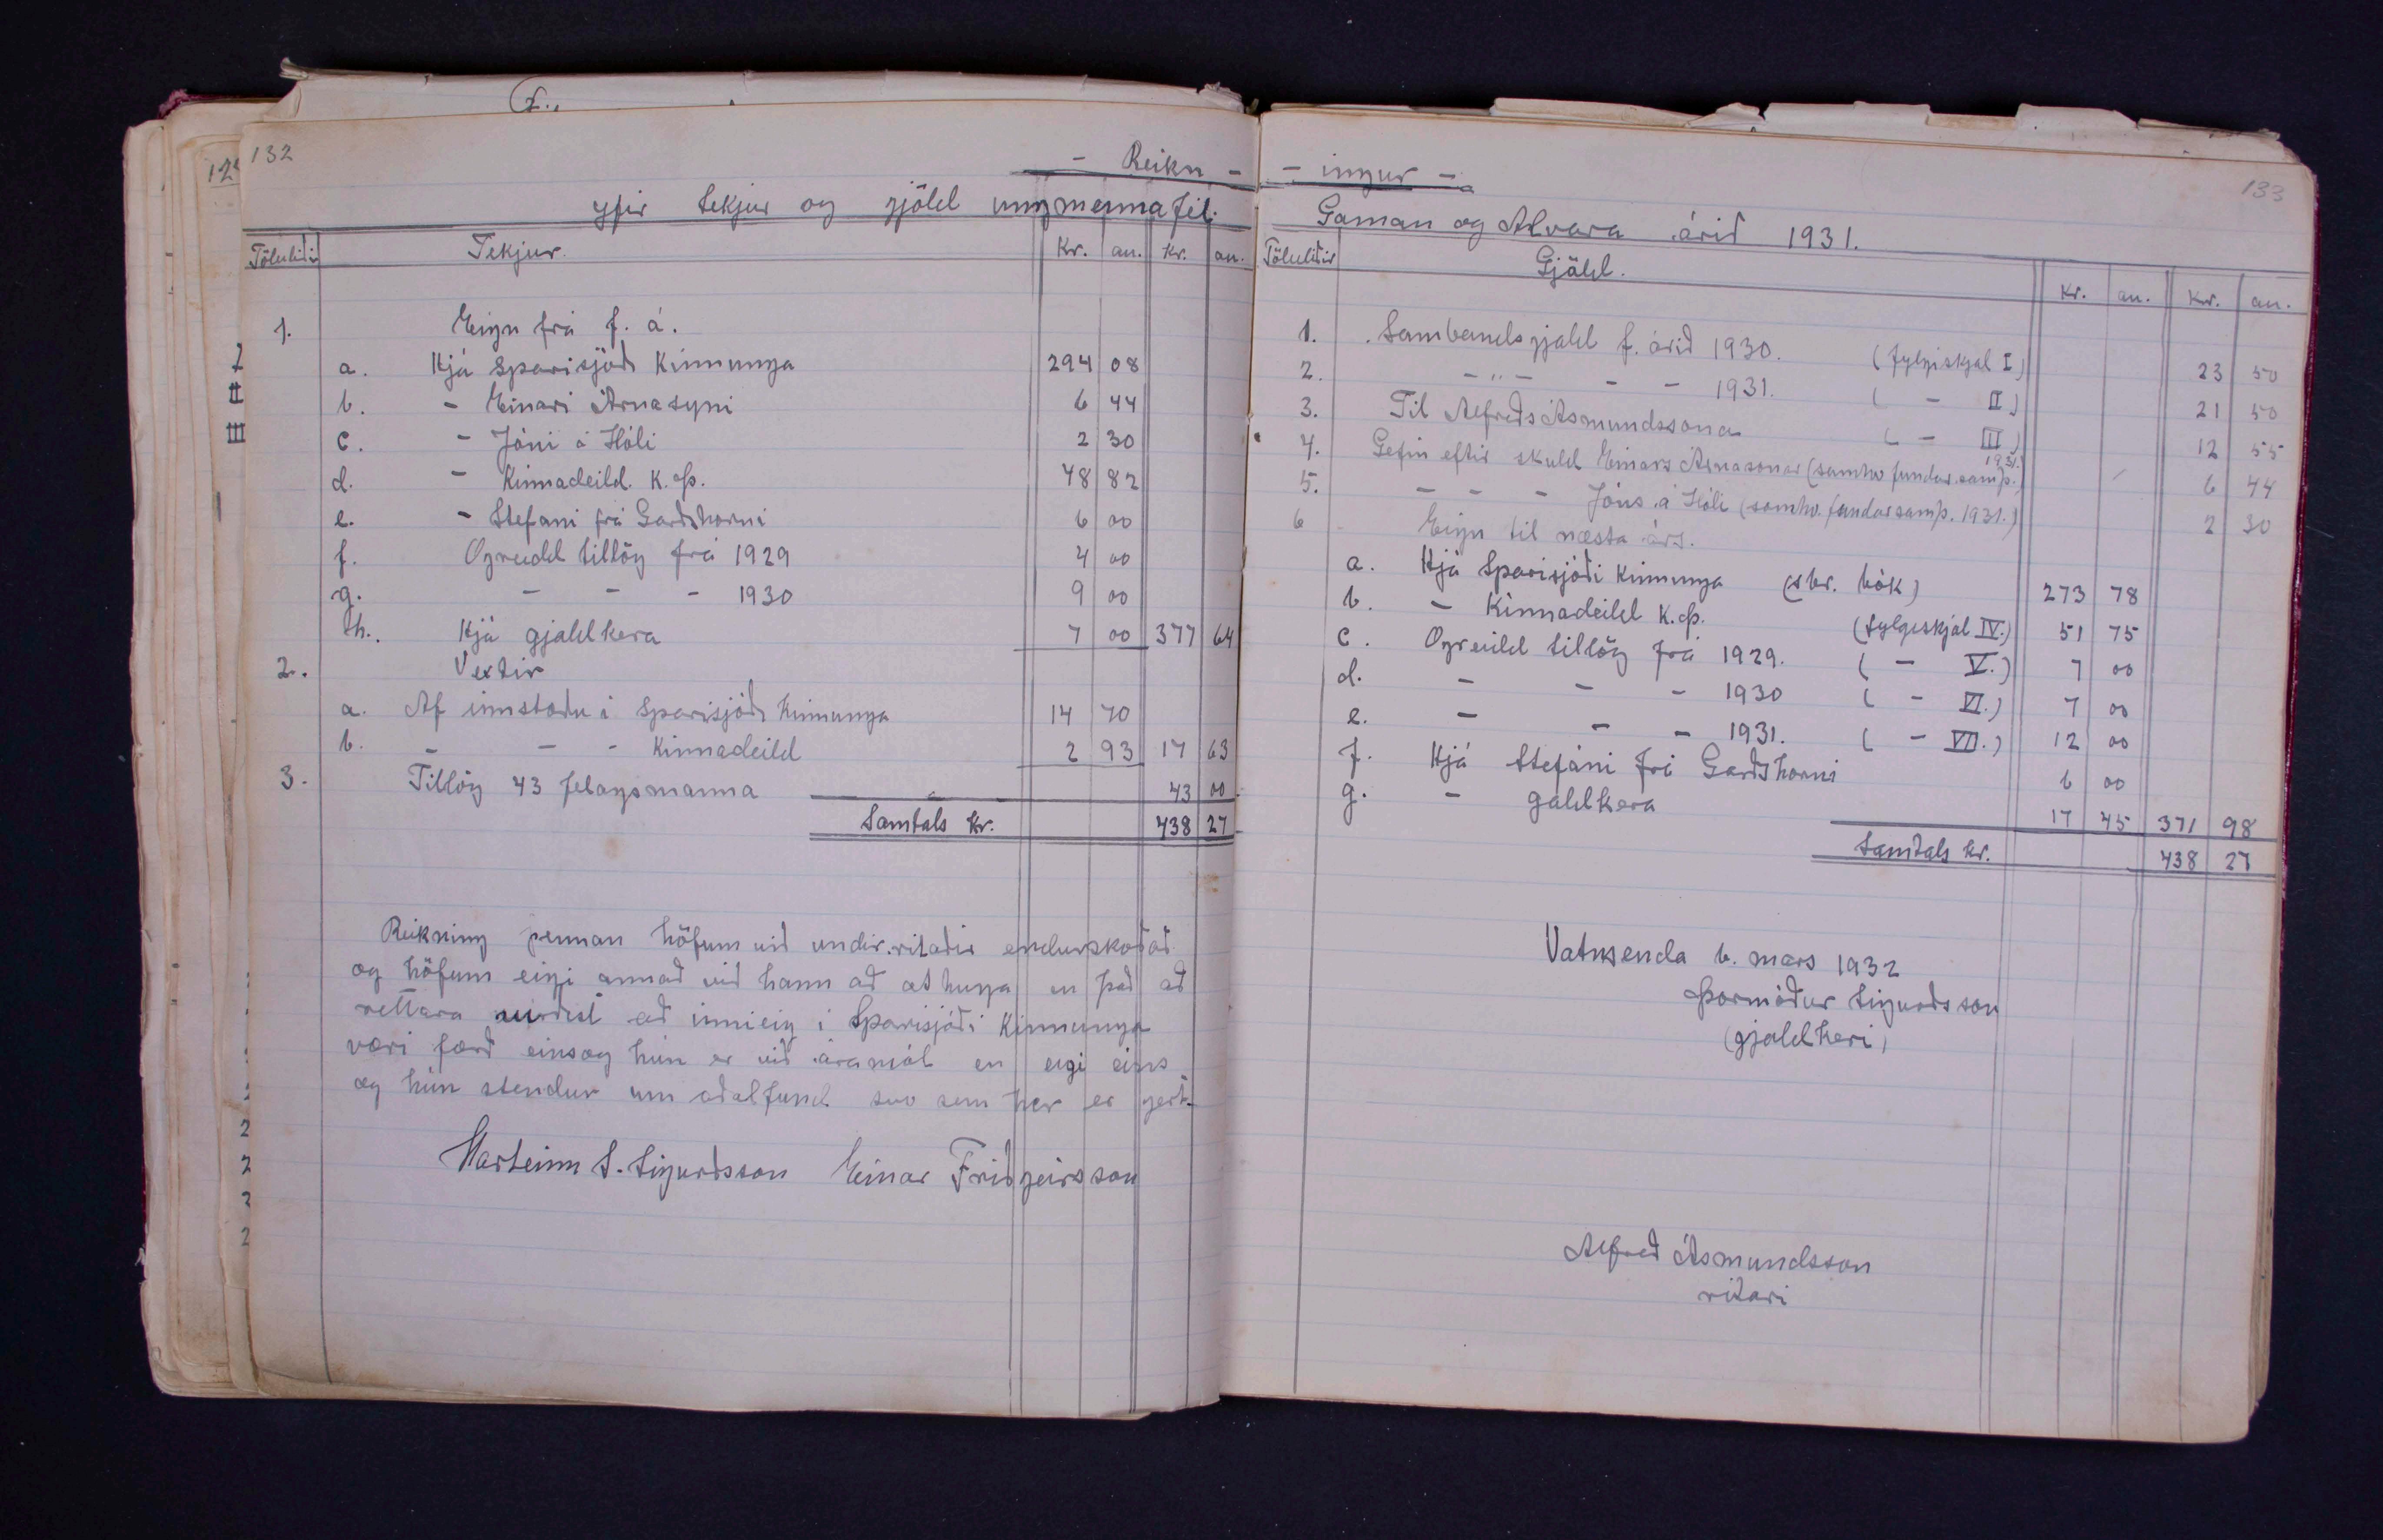 132
- Reikn -
yfir tekjur og gjöld ungmennafél.
Töluliðir Tekjur. Kr. au. Kr. au.
1. Eign frá f. á.
a. Hjá Sparisjóði Kinnunga 294 08
b. - Einari Árnasyni 6 44
c. - Jóni á Hóli 2 30
d. - Kinnadeild. K.Þ. 48 82
e. - Stefani frá Garðshorni 6 00
f. Ogreidd tillög frá 1929 4 00
g. - - - 1930 9 00
h. Hjá gjaldkera 7 00 377 64
2. Vextir
a. Af innstæðu í Sparisjóði Kinnunga 14 70
b. - - - Kinnadeild 2 93 17 63
3. Tillög 43 felagsmanna 43 00
Samtals kr. 438 27
Reikning þennan höfum við undirritaðir endurskoðað
og höfum eigi annað við hann að athuga en það að
rettara virdist að innieig í Sparisjóði Kinnunga
væri færð einsog hún er við áramót en eigi eins
og hún stendur um aðalfund svo sem her er gert.
Marteinn S. Sigurðsson Einar Friðgeirsson
133
- ingur -
Gaman og Alvara árið 1931.
Töluliðir Gjöld. Kr. au. Kr. au.
1. Sambandsgjald f. árið 1930. (fylgiskjal I) 23 50
2. - " - - - 1931. ( - II.) 21 50
3. Til Alfreds Ásmundssona ( - III.) 12 55
4. Gefin eftir skuld Einars Árnasonar (samkv. fundarsamþ. 1931.) 6 44
5. - - - Jóns á Hóli (samkv. fundarsamþ. 1931.) 2 30
6 Eign til næsta árs.
a. Hjá Sparisjóði Kinnunga (sbr. bók) 273 78
b. - Kinnadeild K.Þ. (fylgiskjal IV.) 51 75
c. Ogreidd tillög frá 1929. ( - V.) 7 00
d. - - - 1930 ( - VI.) 7 00
e. - - - 1931. ( - VII.) 12 00
f. Hjá Stefáni frá Garðshorni 6 00
g. - galdkera 17 45 371 98
Samtals kr. 438 27
Vatnsenda 6. mars 1932
Þormóður Sigurðsson
(gjaldkeri)
Alfreð Ásmundsson
ritari